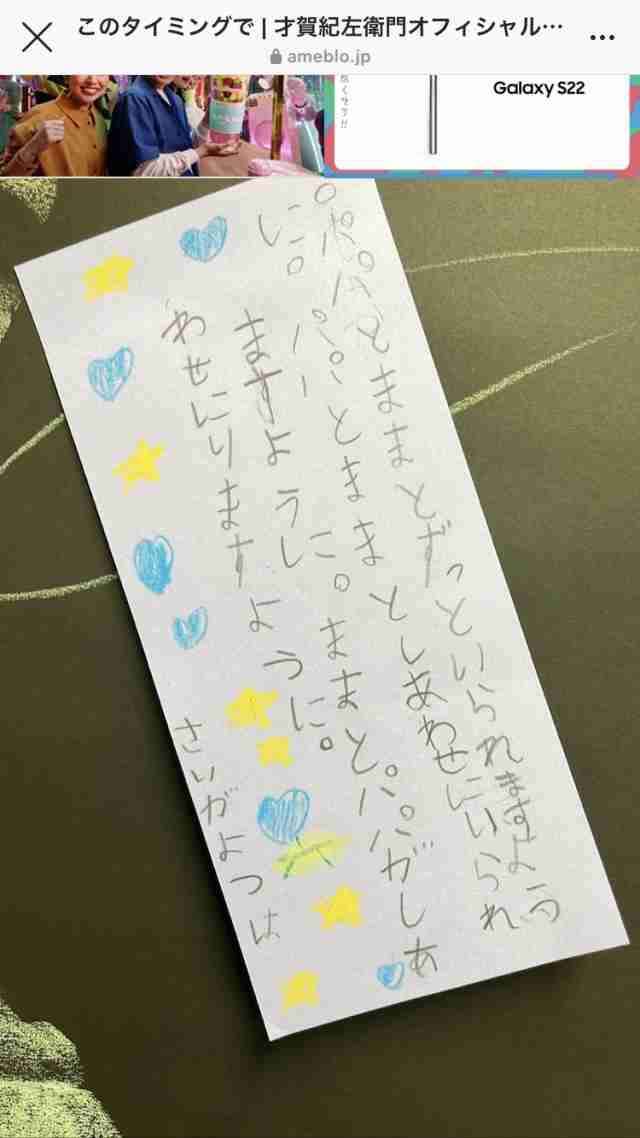 このタイミングで | 才賀紀左衛門オフィシャル…
ameblo.jp
Galaxy S22
パパとままとずっといられますよう
に。パパとままとしあわせにいられ
ますように。ままとパパがしあ
わせにりますように。
さいがよつは